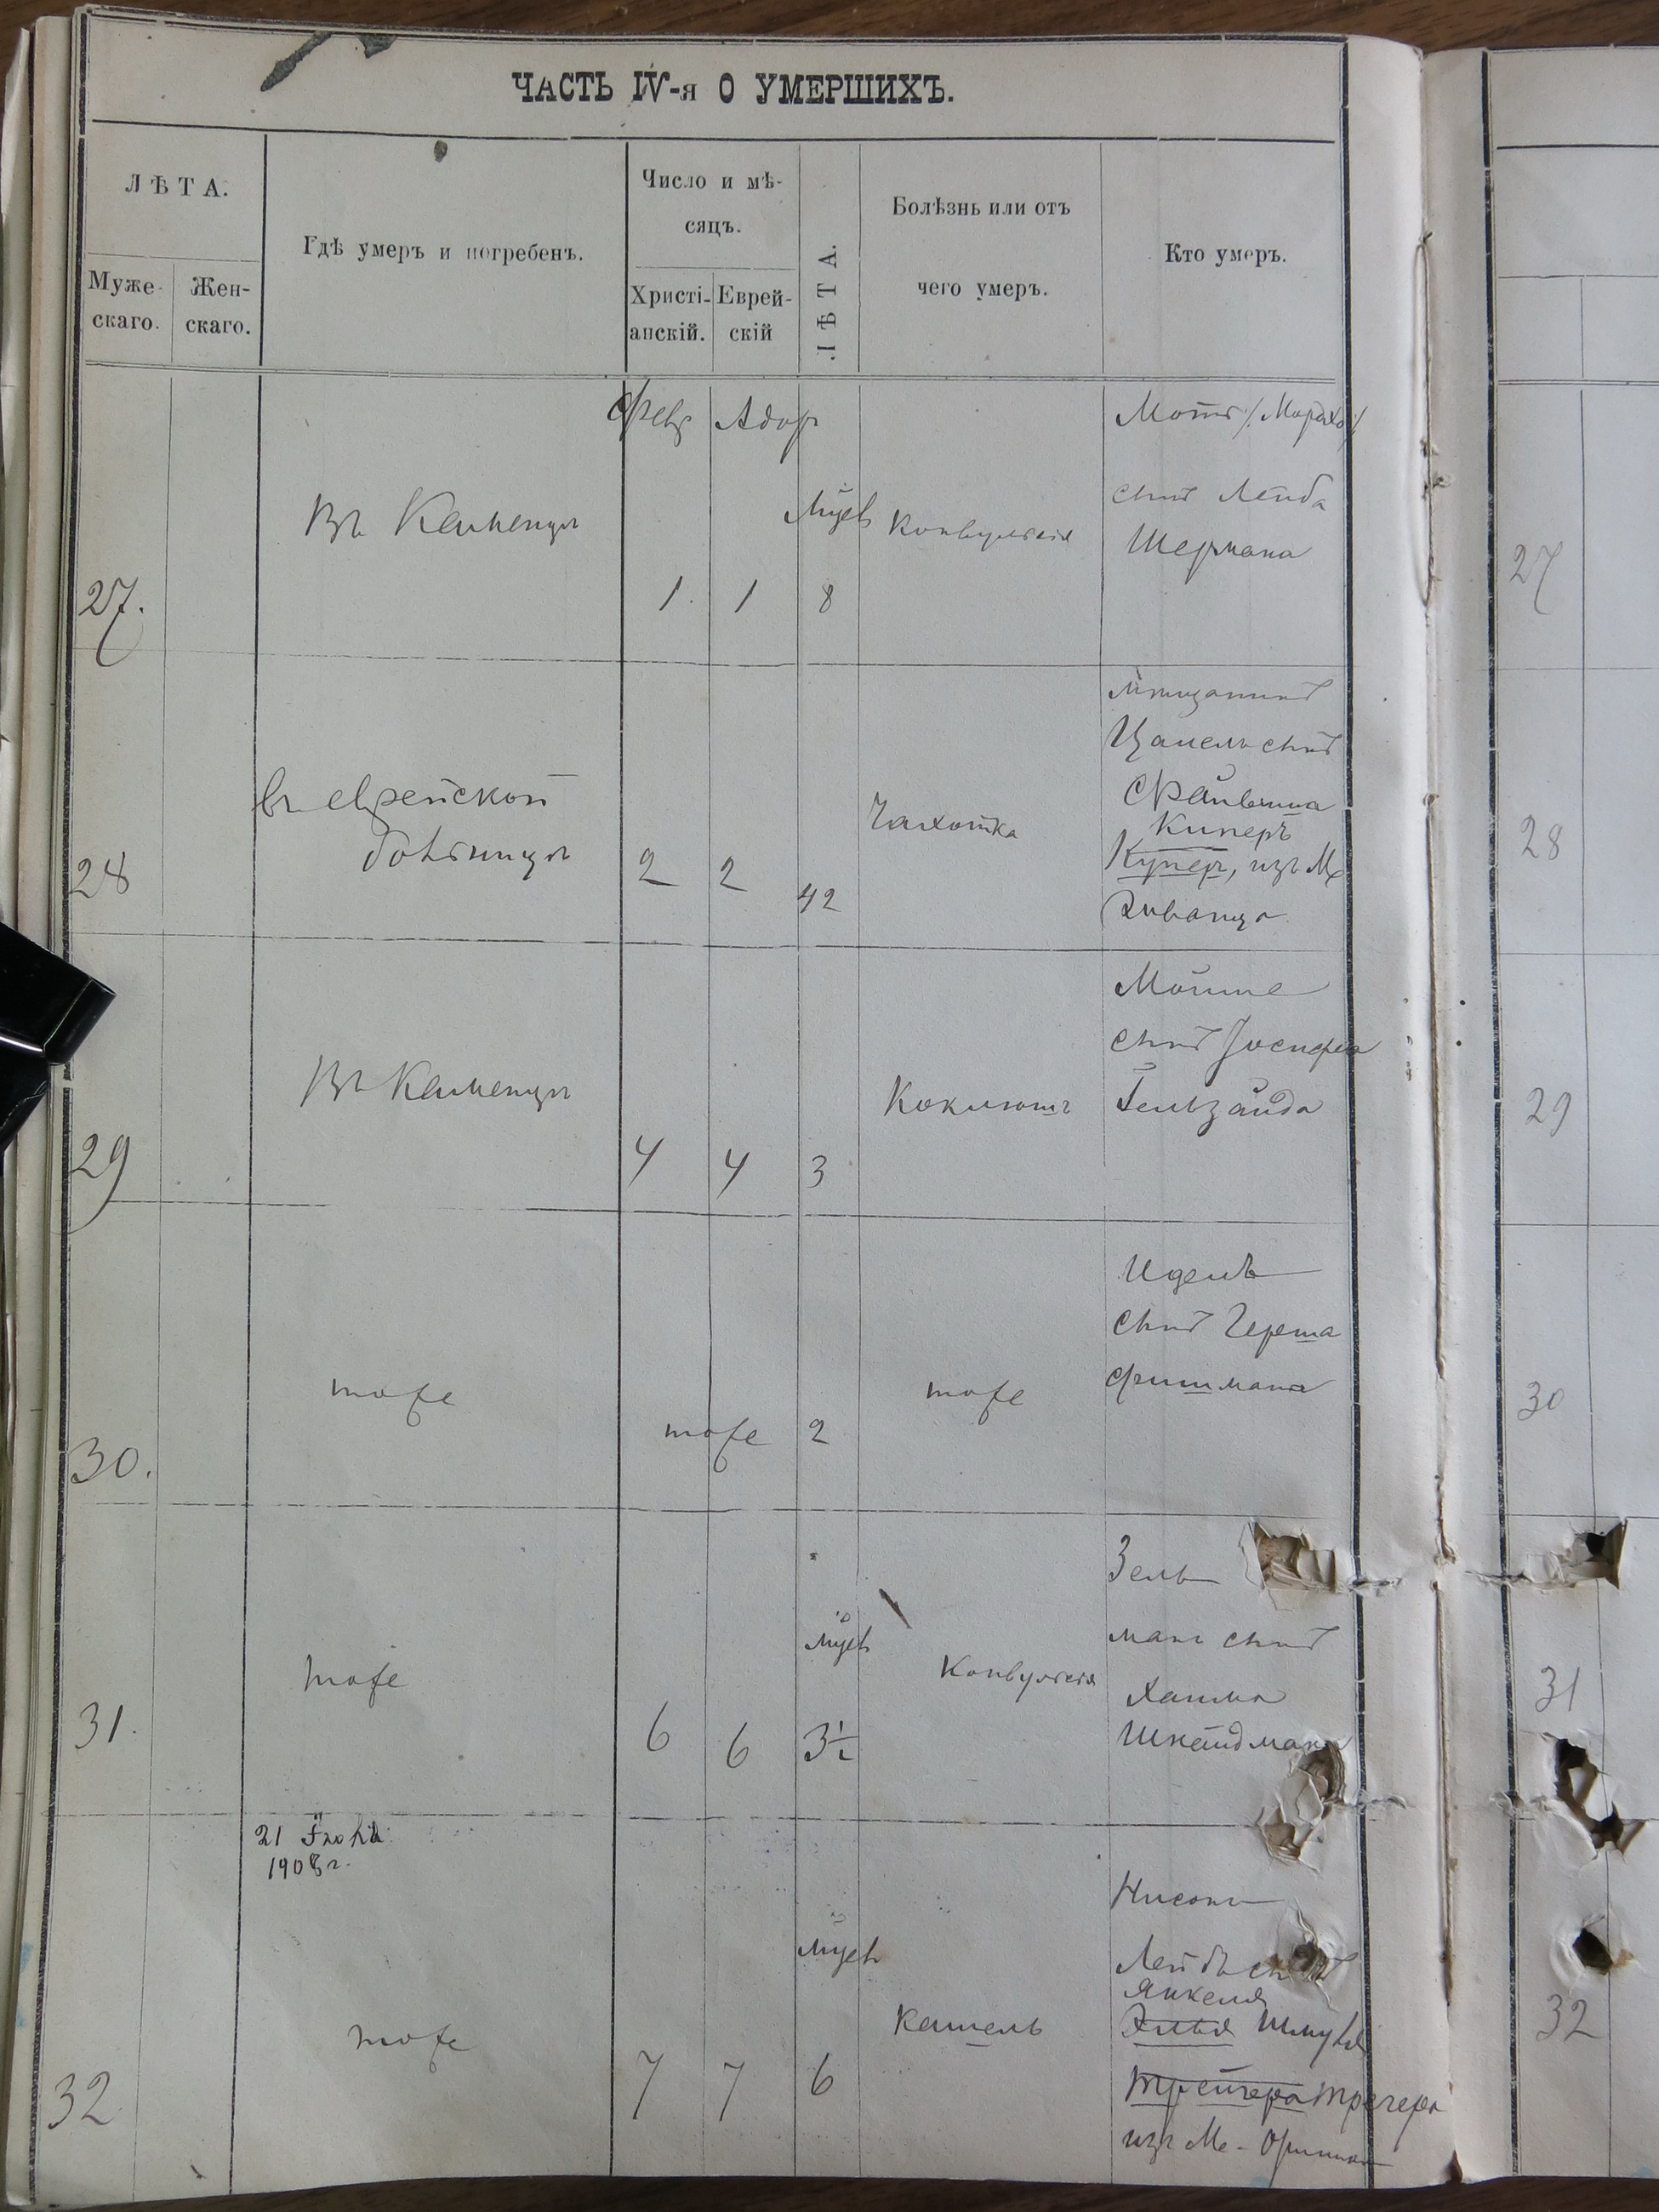 ЧАСТЬ IV-я О УМЕРШИХЪ.
ЛѢТА.
Муже-
скаго.
Жен-
скаго.
Гдѣ умеръ и погребенъ.
Число и мѣ-
сяцъ.
Христі-
анскій.
Еврей-
скій
ЛѢТА.
Болѣзнь или отъ
чего умеръ.
Кто умеръ.
Февр Адар
27.
Въ Каменцѣ
1. 1
Мцев
8
Конвульсія
Мотя /: Мордхо :/
сынъ Лейба
Шермана
27
28
въ еврейской
больницѣ
2 2 42
Чахотка
мѣщанинъ
сынъ
Файвиша
Киперъ
Куперъ, изъ М.
28
29
Въ Каменцѣ
4 4 3
Коклюшъ
Мойше
сынъ Іосифа
Гельзайда
29
30.
тоже
тоже 2
тоже
Идель
сынъ Герша
Фишмана
30
31.
тоже
6 6
Мцев
3½
Конвульсія
Зель
манъ сынъ
Хаима
Шнайдмана
31
21 Іюля
1908 г.
32
тоже
7 7
Мцев
6
Кашель
Нисонъ
Лейбъ сынъ
Янкеля
Эльья Шмуля
Трейгера Трегера
изъ М. Оринина
32